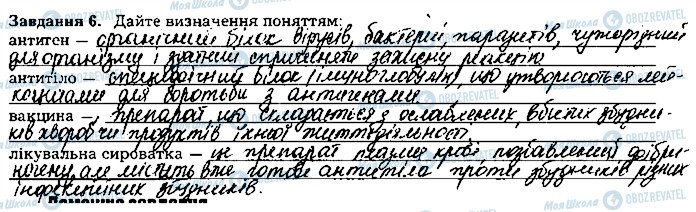 Завдання 6. Дайте визначення поняттям:
антиген – органічний білок вірусів, бактерій, паразитів, чужорідний
для організму і здатний спричинети захисну реакцію
антитіло – специфічний білок (імуноглобулін), що утворюється лей-
коцитами для боротьби з антигенами.
вакцина – препарат, що складається з ослаблених, вбитих збудни-
ків хвороб чи продуктів їхньої життєдіяльності.
лікувальна сироватка – це препарат плазми крові позбавлений фібри-
ногену, але містить вже готові антитіла проти збудників різних
інфекційних збудників.
Домашнє завдання